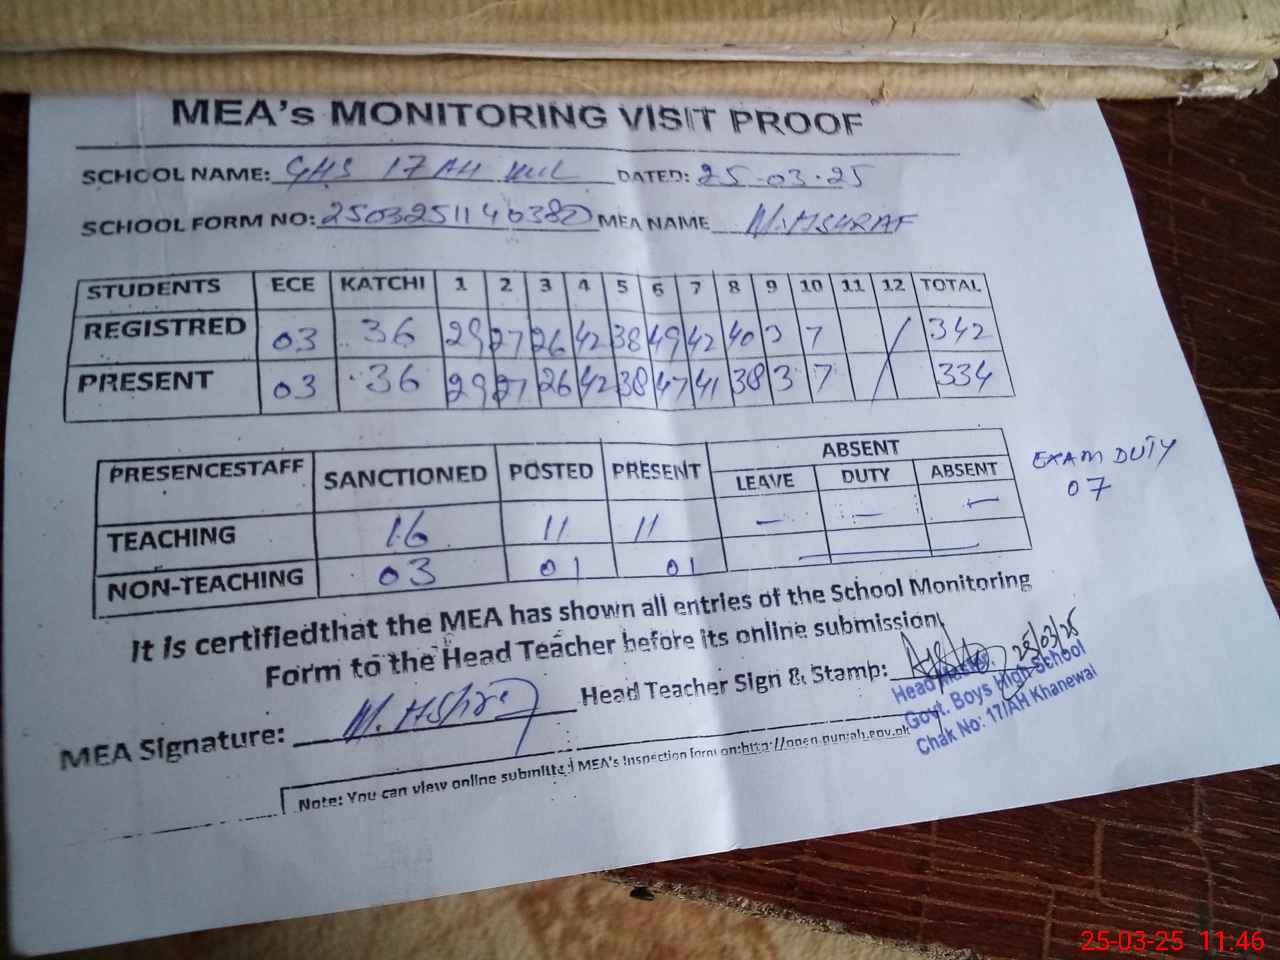 MEA's MONITORING VISIT PROOF
SCHOOL NAME: GHS 17 AH DATED: 25-03-25
SCHOOL FORM NO: 2503251140380 MEA NAME M. ASHRAF
STUDENTS ECE KATCHI 1 2 3 4 5 6 7 8 9 10 11 12 TOTAL
REGISTRED 03 36 29 27 26 42 38 49 42 40 3 7 342
PRESENT 03 36 29 27 26 42 38 47 41 38 3 7 334
ABSENT
PRESENCESTAFF SANCTIONED POSTED PRESENT LEAVE DUTY ABSENT
TEACHING 16 11 11 — — —
NON-TEACHING 03 01 01 —
EXAM DUTY
07
It is certifiedthat the MEA has shown all entries of the School Monitoring
Form to the Head Teacher before its online submission
MEA Signature: Head Teacher Sign & Stamp: 25/03/25
Head Master
Govt. Boys High School
Chak No: 17/AH Khanewal
Note: You can view online submitted MEA's Inspection form on:http://open.punjab.gov.pk
25-03-25 11:46